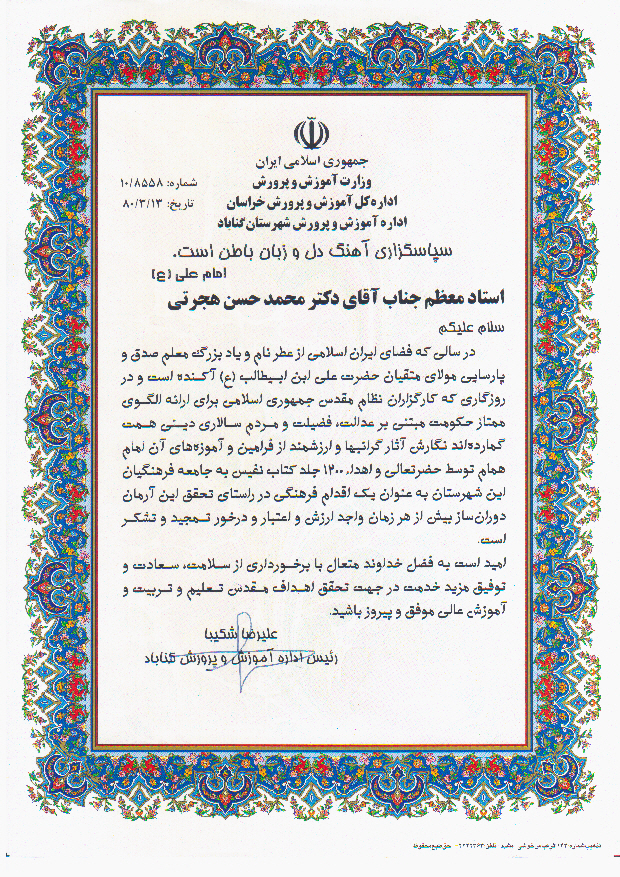 جمهوری اسلامی ایران
وزارت آموزش و پرورش
شماره: ۱۰/۸۵۵۸
اداره کل آموزش و پرورش خراسان
تاریخ: ۸۰/۳/۱۳
اداره آموزش و پرورش شهرستان گناباد
سپاسگزاری آهنگ دل و زبان باطن است.
امام علی (ع)
استاد معظم جناب آقای دکتر محمد حسن هجرتی
سلام علیکم
در سالی که فضای ایران اسلامی از عطر نام و یاد بزرگ معلم صدق و
پارسایی مولای متقیان حضرت علی ابن ابیطالب (ع) آکنده است و در
روزگاری که کارگزاران نظام مقدس جمهوری اسلامی برای ارائه الگوی
ممتاز حکومت مبتنی بر عدالت، فضیلت و مردم سالاری دینی همت
گمارده‌اند نگارش آثار گرانبها و ارزشمند از فرامین و آموزه‌های آن امام
همام توسط حضرتعالی و اهداء ۱۲۰۰ جلد کتاب نفیس به جامعه فرهنگیان
این شهرستان به عنوان یک اقدام فرهنگی در راستای تحقق این آرمان
دوران‌ساز بیش از هر زمان واجد ارزش و اعتبار و درخور تمجید و تشکر
است.
امید است به فضل خداوند متعال با برخورداری از سلامت، سعادت و
توفیق مزید خدمت در جهت تحقق اهداف مقدس تعلیم و تربیت و
آموزش عالی موفق و پیروز باشید.
علیرضا شکیبا
رئیس اداره آموزش و پرورش گناباد